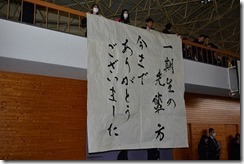 一期生の
先輩方
今まで
ありがとう
ございました